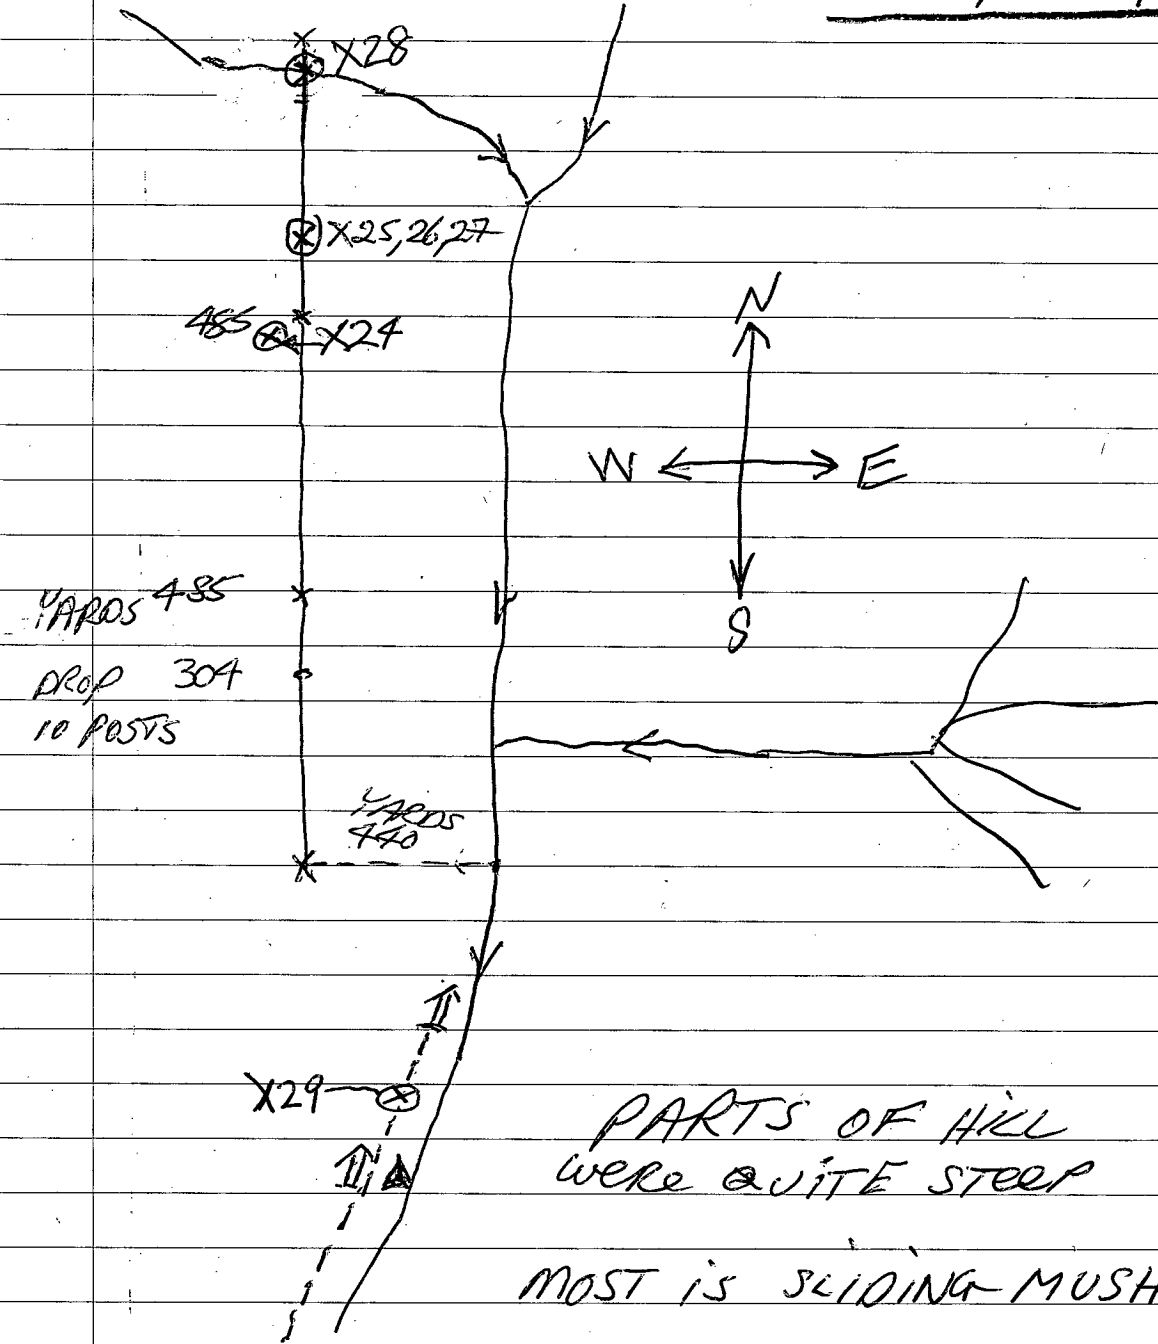 X28
X25,26,27
485
X24
N
W E
S
YARDS 485
DROP 304
10 POSTS
YARDS
440
X29
PARTS OF HILL
WERE QUITE STEEP
MOST IS SLIDING MUSH